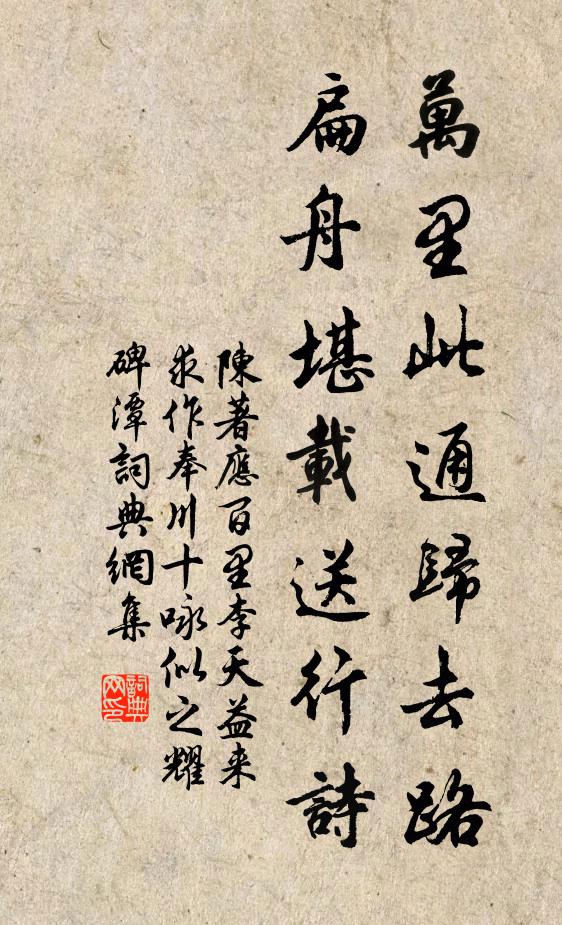 萬里此通歸去路
扁舟堪載送行詩
陳著應百里李天益来
求作奉川十咏似之耀
碑潭詞典網集
詞典
网印